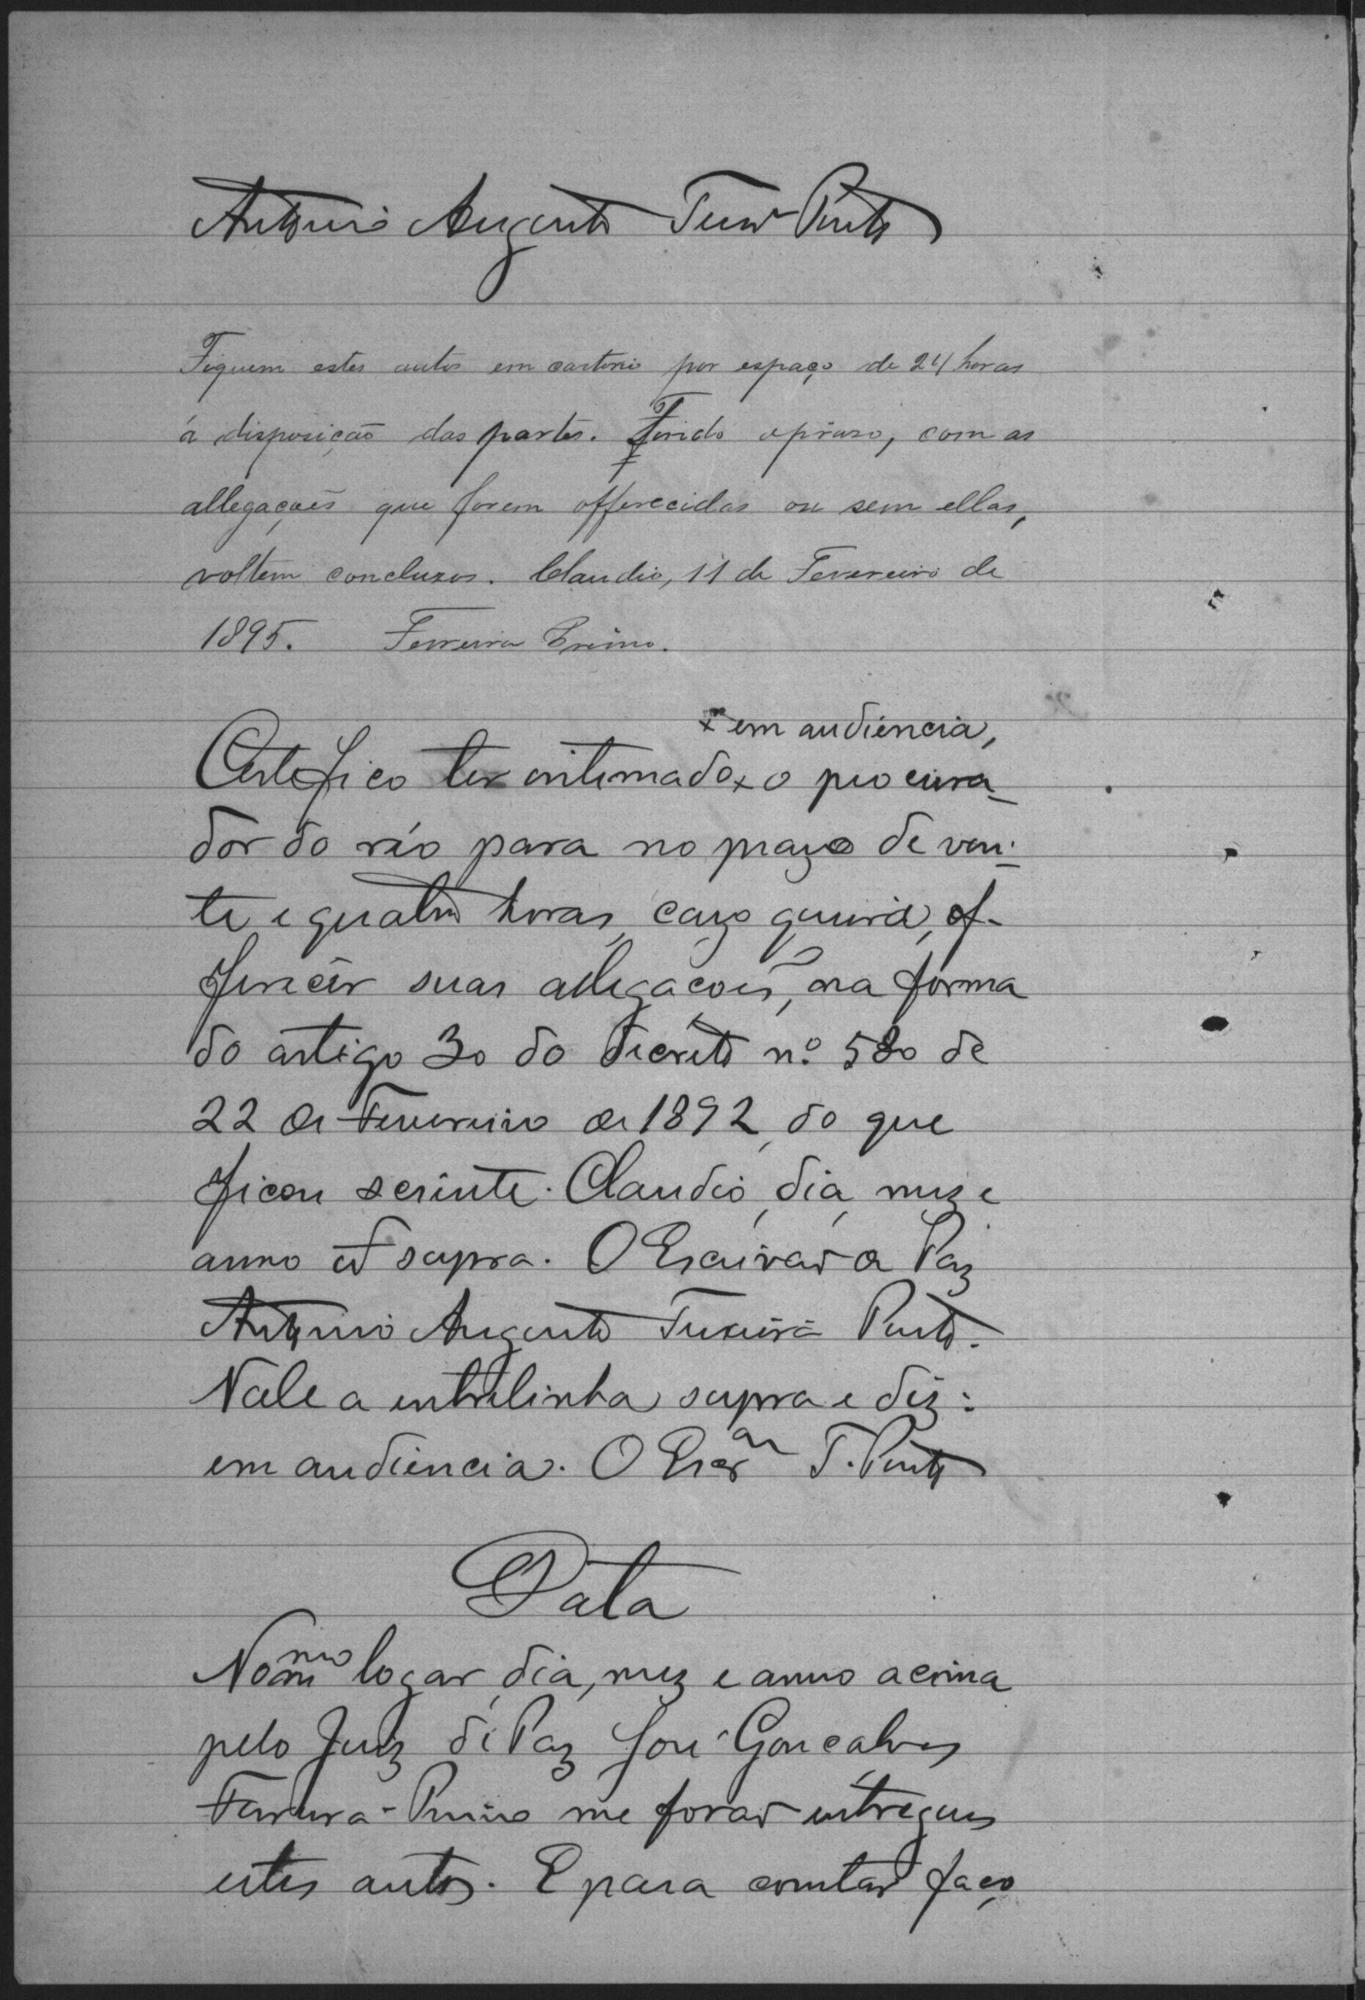 Antonio Augusto Teixrª Pinto
Fiquem estes autos em cartorio por espaço de 24 horas
á disposição das partes. Findo o praso, com as
allegações que forem offerecidas ou sem ellas,
voltem concluzos. Claudio, 11 de Fevereiro de
1895. Ferreira Primo.
x em audiencia,
Certefico ter intimado x o procura-
dor do réo para no prazo de vin-
te e quatro horas, cazo queira, of-
ferecer suas allegacões, na forma
do artigo 30 do Decreto n.º 580 de
22 de Fevereiro de 1892, do que
ficou sciente. Claudio, dia, mez e
anno ut supra. O Escrivão de Paz
Antonio Augusto Teixeira Pinto.
Vale a entrelinha supra e diz:
em audiencia. O Escram T. Pinto
Data
No mmo logar, dia, mez e anno acima
pelo Juiz de Paz José Goncalves
Ferreira Primo me forão entregues
estes autos. E para constar faço